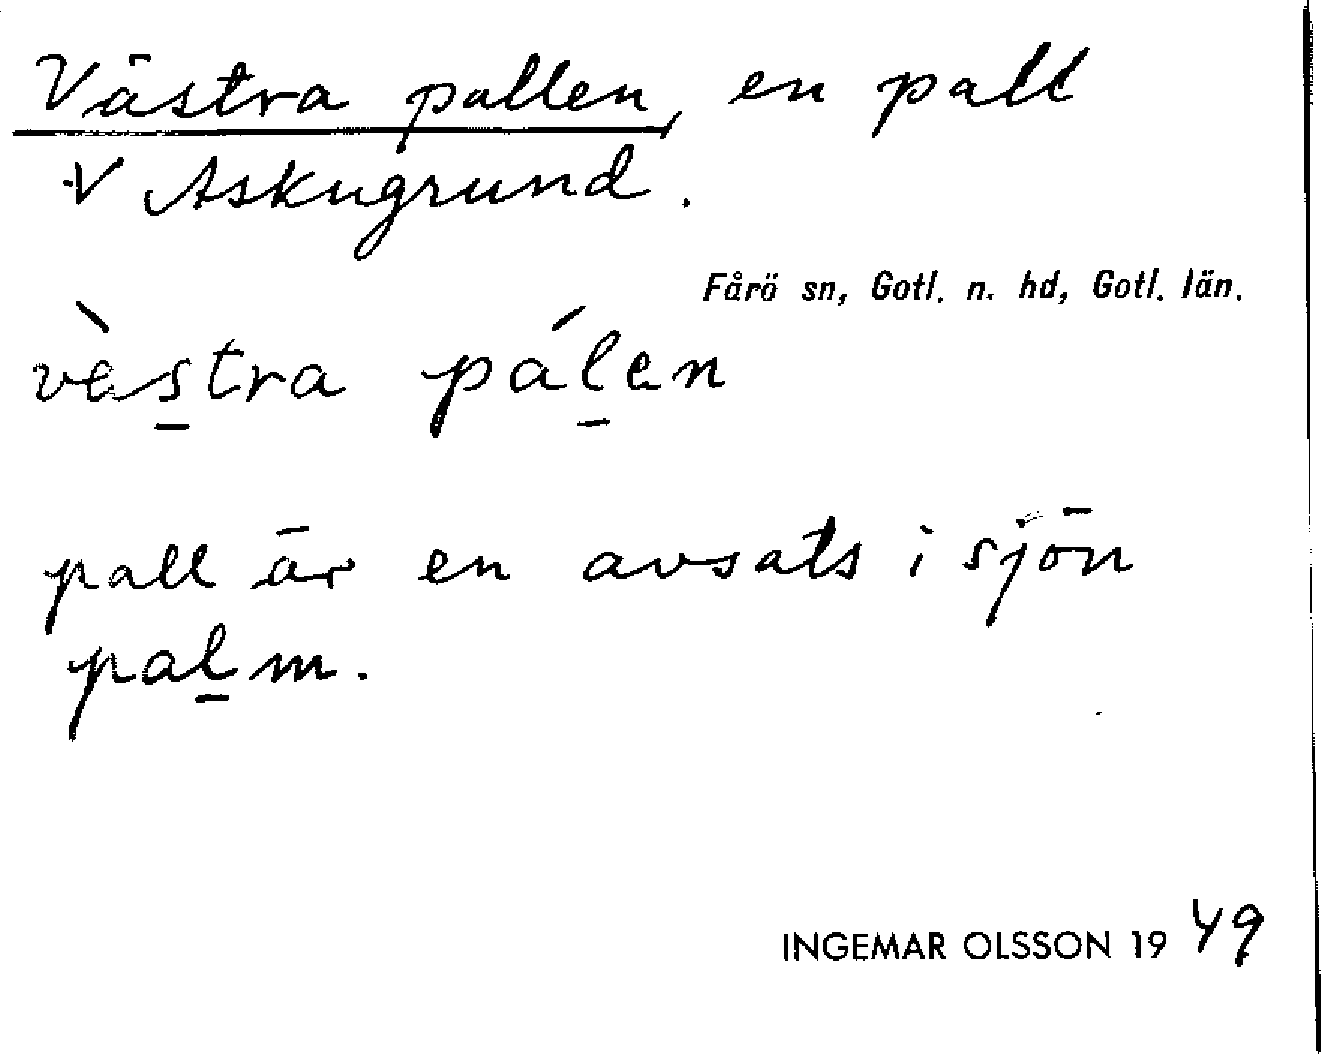 Västra pallen, en pall
V Askugrund.
Fårö sn, Gotl. n. hd, Gotl. län.
vὲs̠tra pál̠en
pall är en avsats i sjön
pal̠ m.
INGEMAR OLSSON 1949